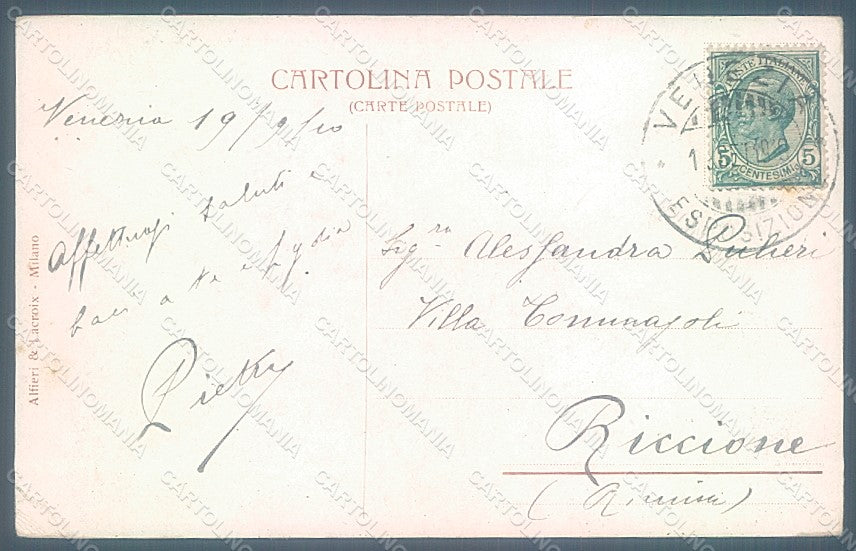 CARTOLINA POSTALE
(CARTE POSTALE)
Venezia 19/9/10
Affettuosi saluti e
baci a te e Lydia
Alfieri & Lacroix - Milano
POSTE ITALIANE
5 5
CENTESIMI
VENEZIA
ESPOSIZIONE
Sig.ra Alessandra
Villa
Riccione
(Rimini)
CARTOLINOMANIA